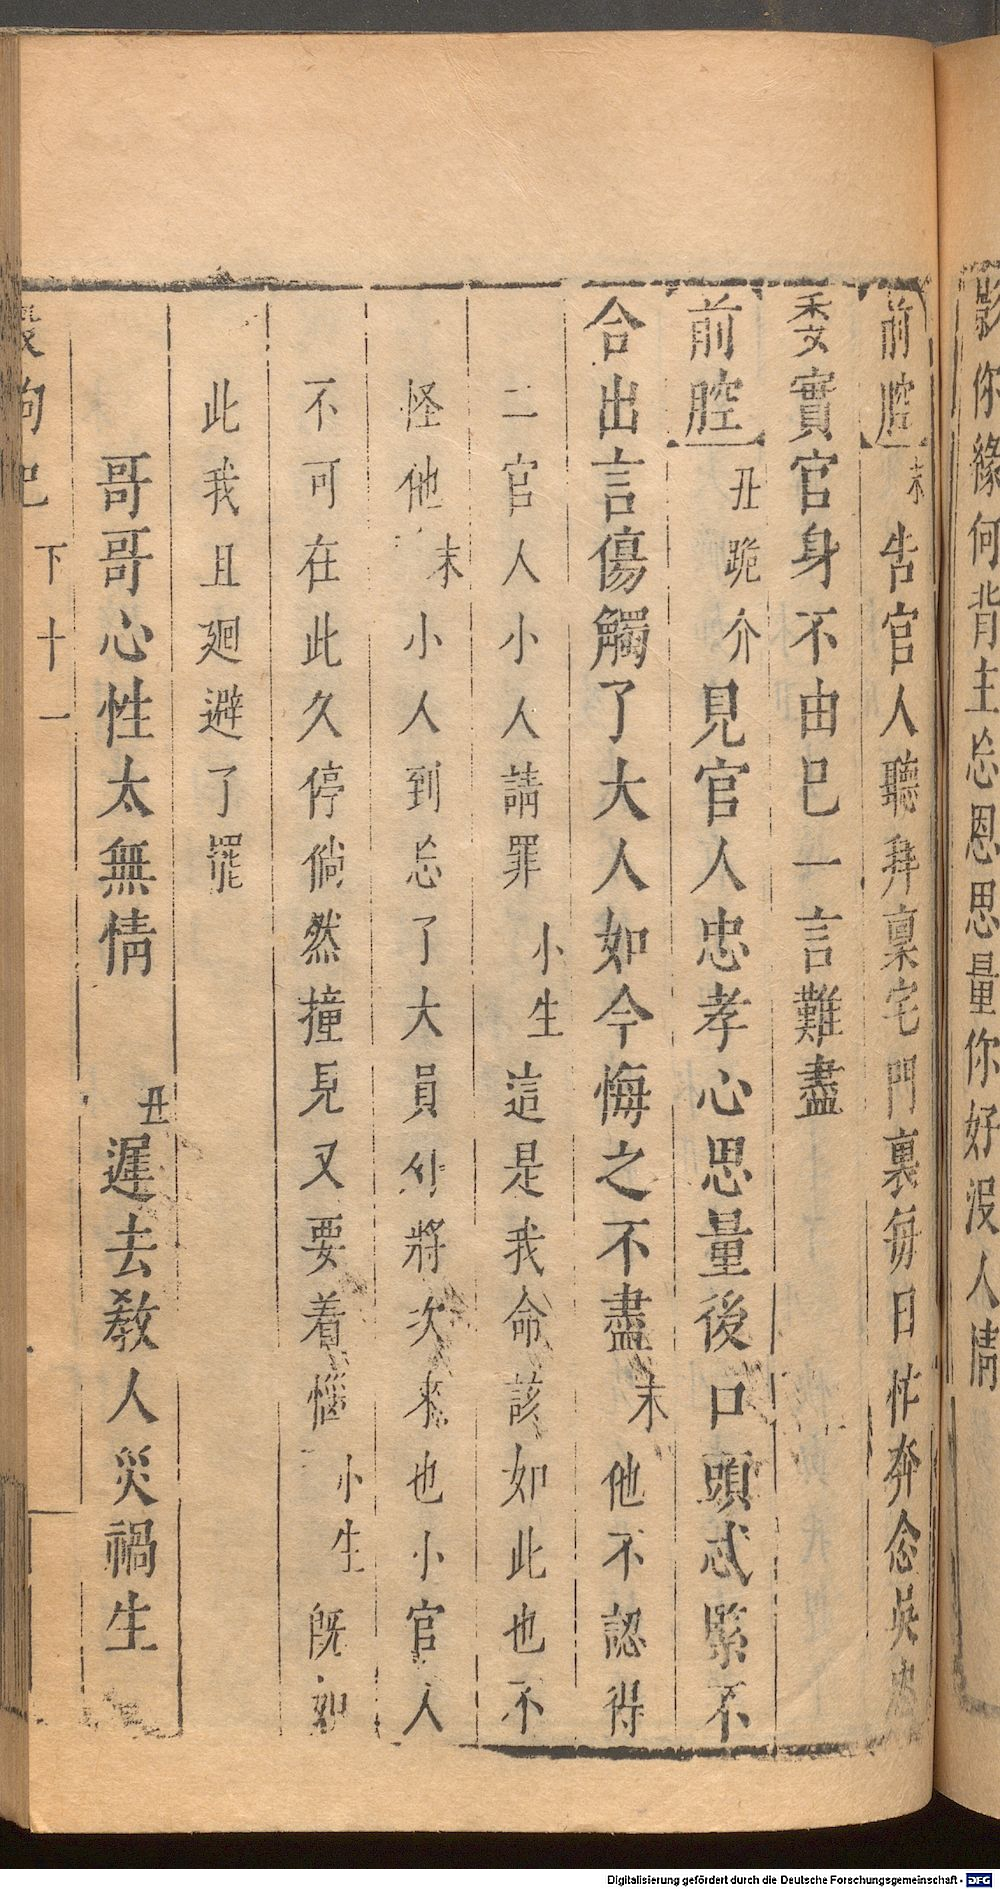 影你緣何背主忘恩思量你好没人情
前腔末告官人聽拜稟宅門裏每日忙奔念吳忠
委實官身不由巳一言難盡
前腔丑跪介見官人忠孝心思量後口頭忒緊不
合出言傷觸了大人如今悔之不盡末他不認得
二官人小人請罪小生這是我命該如此也不
怪他末小人到忘了大員外將次來也小官人
不可在此久停倘然撞見又要着惱小生既如
此我且廻避了罷
哥哥心性太無情 丑遲去教人災禍生
殺狗巳 下十一
Digitalisierung gefördert durch die Deutsche Forschungsgemeinschaft - DFG